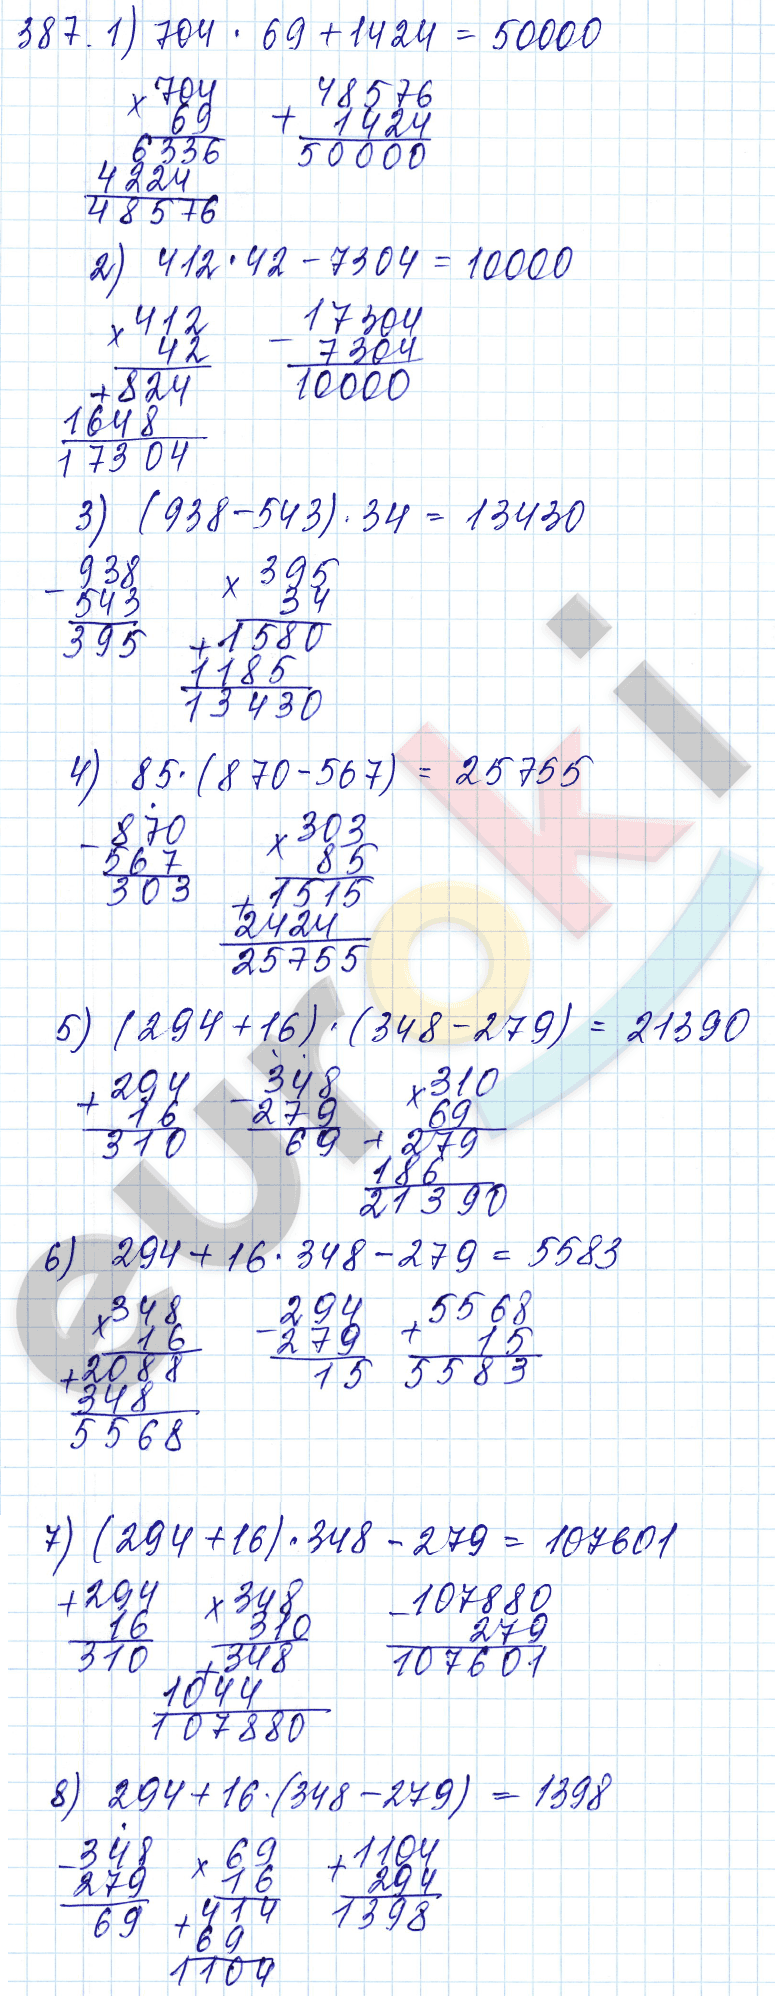 387. 1) 704 · 69 + 1424 = 50000
× 704   48576
69   + 1424
6336   50000
4224
48576
2) 412 · 42 - 7304 = 10000
× 412   17304
42   - 7304
+ 824   10000
1648
17304
3) (938 - 543) · 34 = 13430
- 938   × 395
543   34
395   + 1580
1185
13430
4) 85 · (870 - 567) = 25755
- 870   × 303
567   85
303   + 1515
2424
25755
5) (294 + 16) · (348 - 279) = 21390
+ 294   - 348   × 310
16   279   69
310   69   + 279
186
21390
6) 294 + 16 · 348 - 279 = 5583
× 348   - 294   + 5568
16   279   15
+ 2088   15   5583
348
5568
7) (294 + 16) · 348 - 279 = 107601
+ 294   × 348   - 107880
16   310   279
310   + 348   107601
1044
107880
8) 294 + 16 · (348 - 279) = 1398
- 348   × 69   + 1104
279   16   294
69   + 414   1398
69
1104
euroki